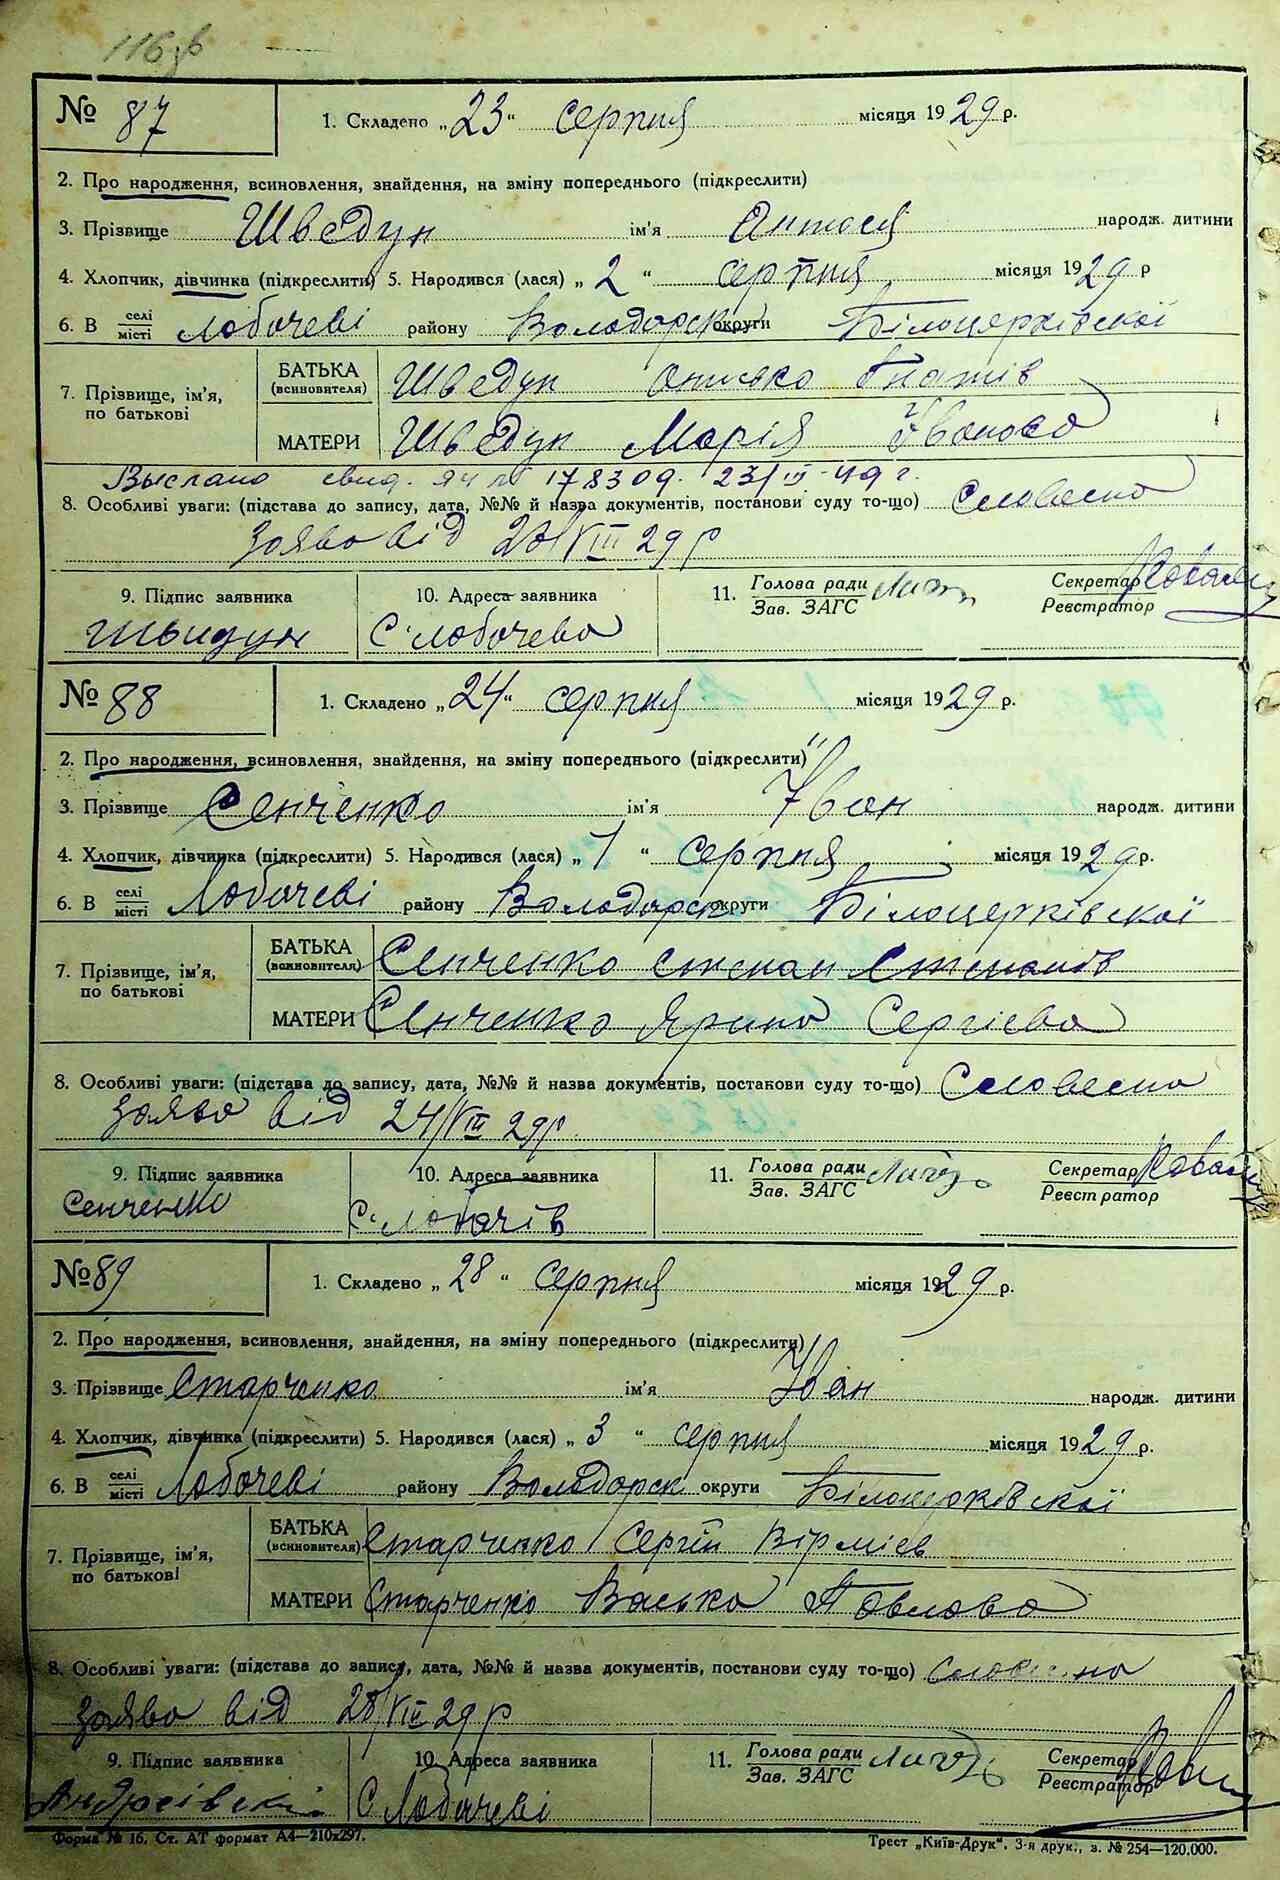 116зв
№ 87
1. Складено „23“ серпня місяця 1929 р.
2. Про народження, всиновлення, знайдення, на зміну попереднього (підкреслити)
3. Прізвище Шведун ім'я Антося народж. дитини
4. Хлопчик, дівчинка (підкреслити) 5. Народився (лася) „2“ серпня місяця 1929 р
6. В селі/місті Лобочеві району Володорск округи Білоцерківскої
7. Прізвище, ім'я, по батькові
БАТЬКА (всиновителя) Шведун Онисько Гнатів
МАТЕРИ Шведун Марія Іванова
Выслано свид. ЯЧ № 178309. 23/III-49 г.
8. Особливі уваги: (підстава до запису, дата, №№ й назва документів, постанови суду то-що) Словесна
заява від 23/VIII 29 р
9. Підпис заявника 10. Адреса заявника 11. Голова ради Секретар
Зав. ЗАГС Реєстратор
Швидун С. Лобочева
№ 88
1. Складено „24“ серпня місяця 1929 р.
2. Про народження, всиновлення, знайдення, на зміну попереднього (підкреслити)
3. Прізвище Сенченко ім'я Іван народж. дитини
4. Хлопчик, дівчинка (підкреслити) 5. Народився (лася) „1“ серпня місяця 1929 р.
6. В селі/місті Лобочеві району Володорск округи Білоцерківскої
7. Прізвище, ім'я, по батькові
БАТЬКА (всиновителя) Сенченко Степан Степанів
МАТЕРИ Сенченко Ярина Сергієва
8. Особливі уваги: (підстава до запису, дата, №№ й назва документів, постанови суду то-що) Словесна
заява від 24/VIII 29р.
9. Підпис заявника 10. Адреса заявника 11. Голова ради Секретар
Зав. ЗАГС Реєстратор
Сенченко С. Лобачів
№ 89
1. Складено „28“ серпня місяця 1929 р.
2. Про народження, всиновлення, знайдення, на зміну попереднього (підкреслити)
3. Прізвище Старченко ім'я Іван народж. дитини
4. Хлопчик, дівчинка (підкреслити) 5. Народився (лася) „3“ серпня місяця 1929 р.
6. В селі/місті Лобочеві району Володорск округи Білоцерківскої
7. Прізвище, ім'я, по батькові
БАТЬКА (всиновителя) Старченко Сергій Вірмієв
МАТЕРИ Старченко Васька Павлова
8. Особливі уваги: (підстава до запису, дата, №№ й назва документів, постанови суду то-що) словесна
заява від 28/VIII 29 р
9. Підпис заявника 10. Адреса заявника 11. Голова ради Секретар
Зав. ЗАГС Реєстратор
Андрієвскі С Лобочеві
Форма № 16. Ст. АТ формат А4—210х297.
Трест „Київ-Друк“. 3-я друк., з. № 254—120.000.